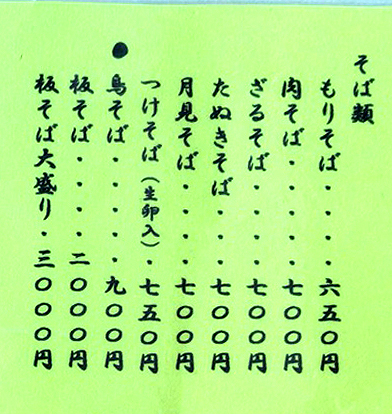 そば類
もりそば・・・・六五〇円
肉そば・・・・・七〇〇円
ざるそば・・・・七〇〇円
たぬきそば・・・七〇〇円
月見そば・・・・七〇〇円
つけそば（生卵入）・七五〇円
●鳥そば・・・・・九〇〇円
板そば・・・・二〇〇〇円
板そば大盛り・三〇〇〇円